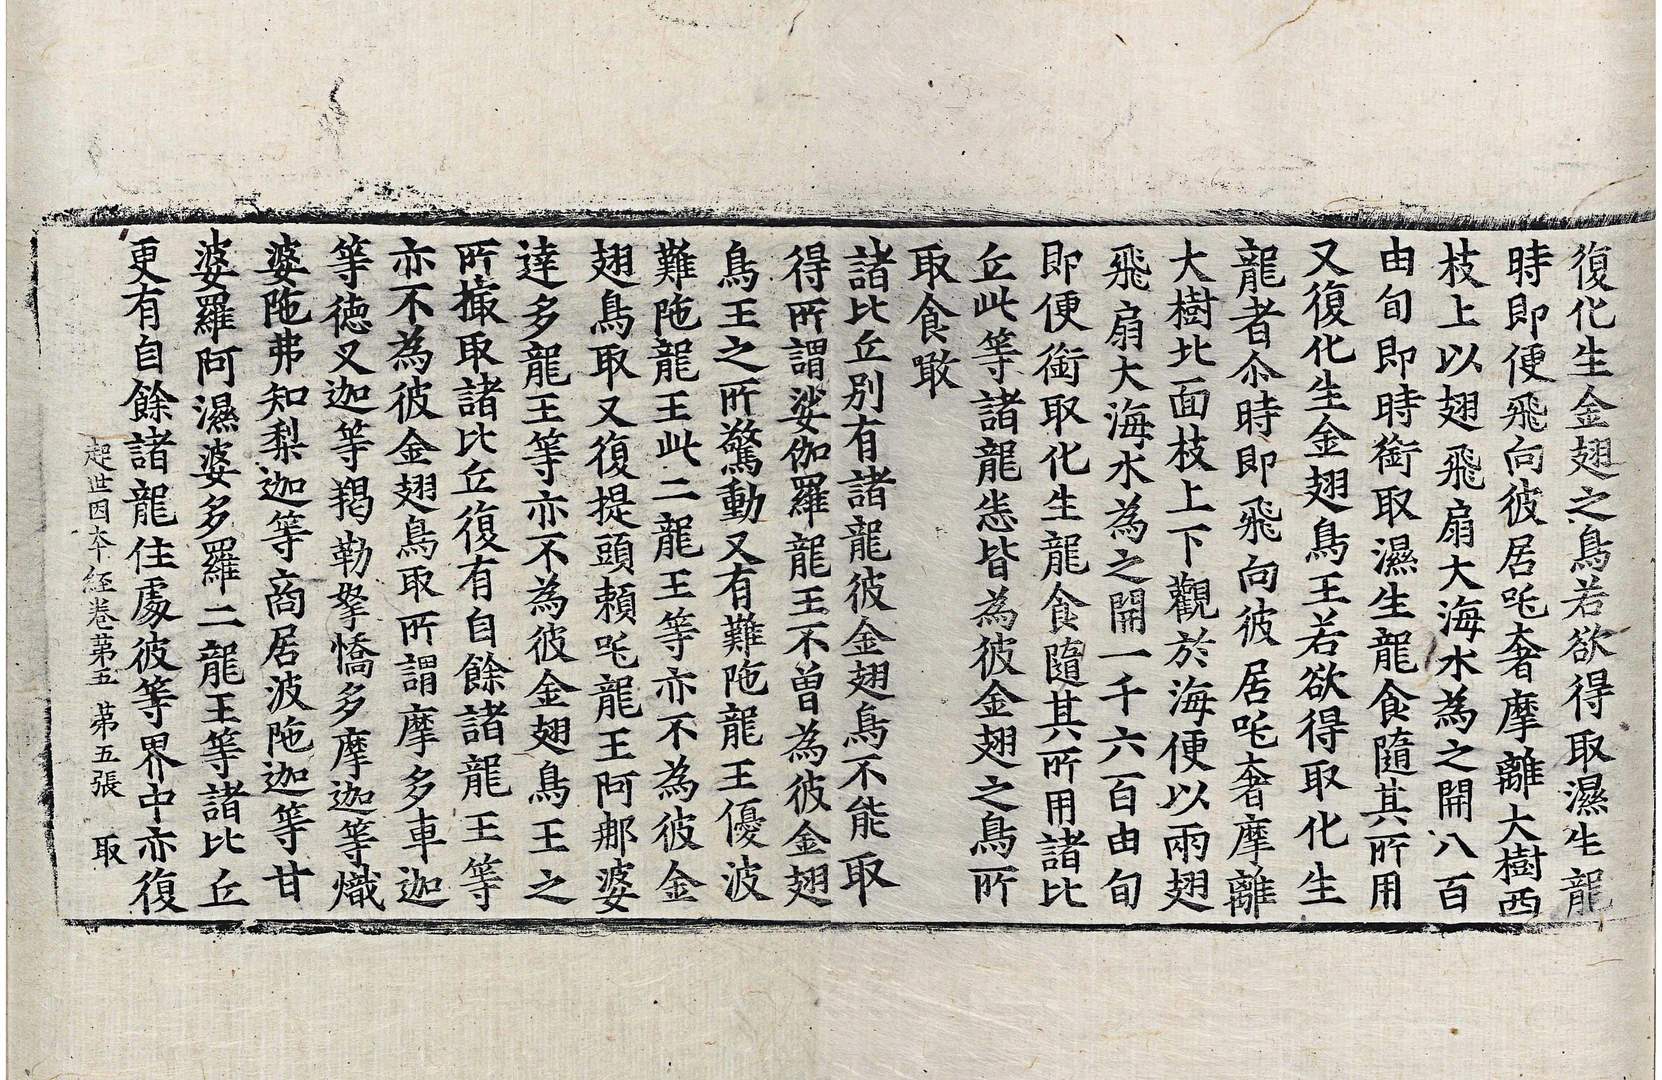 復化生金翅之鳥若欲得取濕生龍
時即便飛向彼居吒奢摩離大樹西
枝上以翅飛扇大海水為之開八百
由旬即時銜取濕生龍食隨其所用
又復化生金翅鳥王若欲得取化生
龍者尒時即飛向彼居吒奢摩離
大樹北面枝上下觀於海便以兩翅
飛扇大海水為之開一千六百由旬
即便銜取化生龍食隨其所用諸比
丘此等諸龍恙皆為彼金翅之鳥所
取食噉
諸比丘別有諸龍彼金翅鳥不能取
得所謂娑伽羅龍王不曾為彼金翅
鳥王之所驚動又有難陁龍王優波
難陁龍王此二龍王等亦不為彼金
翅鳥取又復提頭頼吒龍王阿那婆
達多龍王等亦不為彼金翅鳥王之
所撮取諸比丘復有自餘諸龍王等
亦不為彼金翅鳥取所謂摩多車迦
等德叉迦等羯勒拏憍多摩迦等熾
婆陁弗知梨迦等商居波陁迦等甘
婆羅阿濕婆多羅二龍王等諸比丘
更有自餘諸龍住處彼等界中亦復
起世因夲經卷苐五 苐五張 取